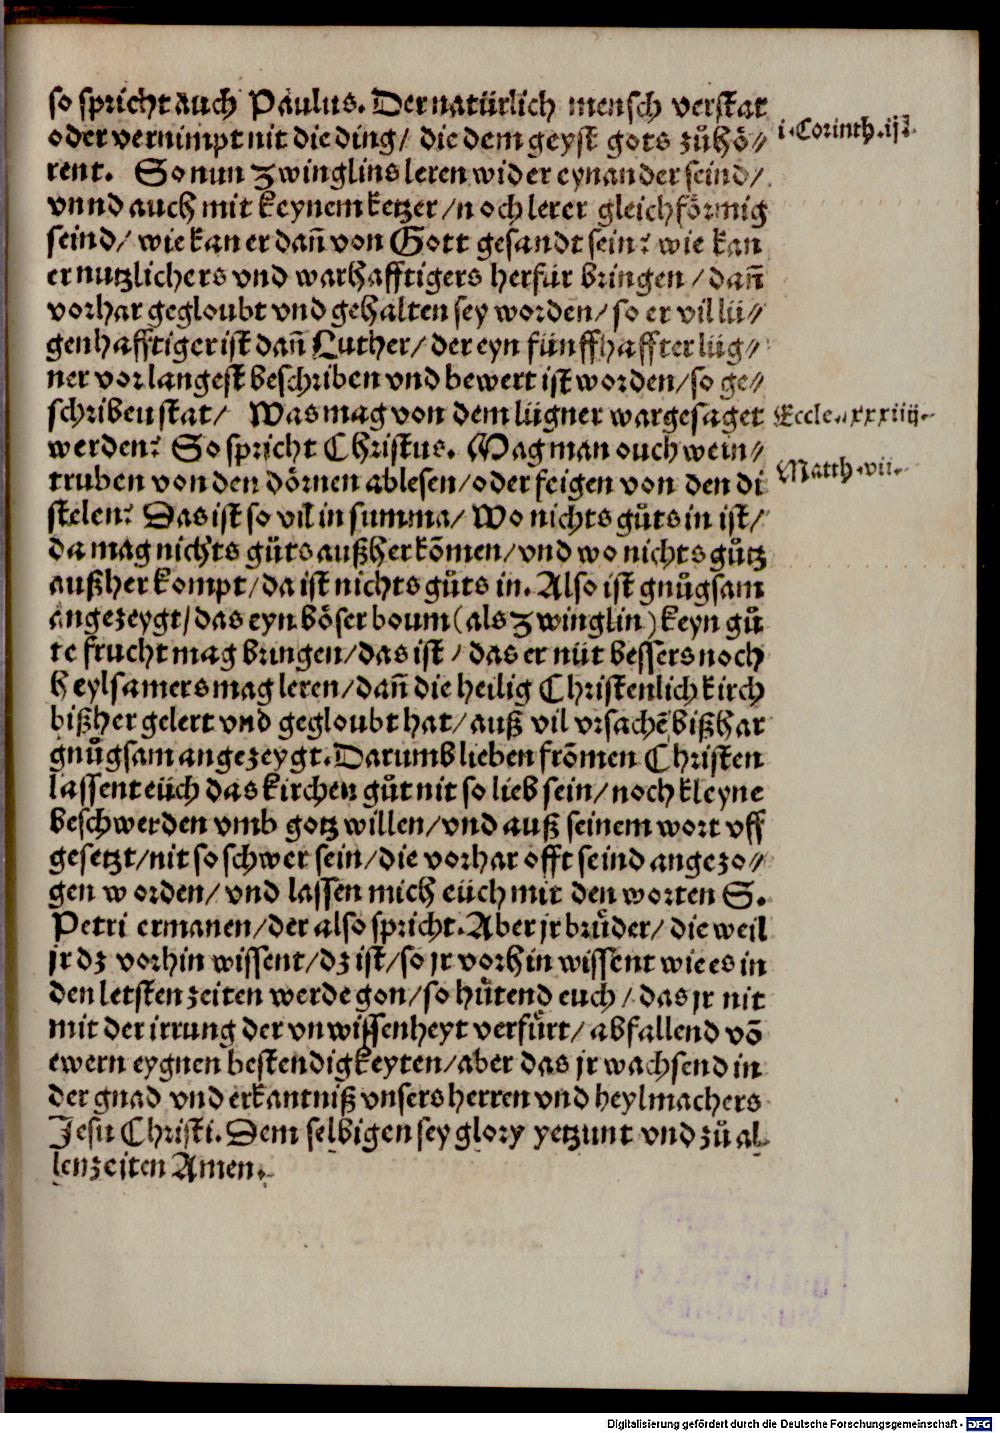 so spricht auch Paulus. Der natürlich mensch verstat
oder vernimpt nit die ding/ die dem geyst gots zůhö⸗
i. Corinth. ij.
rent. So nun Zwinglins leren wider eynander seind/
vnnd auch mit keynem ketzer/ noch lerer gleichförmig
seind/ wie kan er dañ von Gott gesandt sein? wie kan
er nutzlichers vnd warhafftigers herfür bringen/ dañ
vorhar gegloubt vnd gehalten sey worden/ so er vil lü⸗
genhafftiger ist dañ Luther/ der eyn fünffhaffter lüg⸗
ner vorlangest beschriben vnd bewert ist worden/ so ge⸗
schriben stat/ Was mag von dem lügner war gesaget
Eccle. xxxiiij.
werden? So spricht Christus. Mag man ouch wein⸗
truben von den dörnen ablesen/ oder feigen von den di
Matth. vii.
stelen? Das ist so vil in summa/ Wo nichts gůts in ist/
da mag nichts gůts außher kõmen/ vnd wo nichts gůtz
außher kompt/ da ist nichts gůts in. Also ist gnůgsam
angezeygt/ das eyn böser boum (als Zwinglin) keyn gů
te frucht mag bringen/ das ist/ das er nüt bessers noch
heylsamers mag leren/ dañ die heilig Christenlich kirch
bißher gelert vnd gegloubt hat/ auß vil vrsachẽ bißhar
gnůgsam angezeygt. Darumb lieben frõmen Christen
lassent eüch das kirchen gůt nit so lieb sein/ noch kleyne
beschwerden vmb gotz willen/ vnd auß seinem wort vff
gesetzt/ nit so schwer sein/ die vorhar offt seind angezo⸗
gen worden/ vnd lassen mich eüch mit den worten S.
Petri ermanen/ der also spricht. Aber jr brůder/ die weil
jr dz vorhin wissent/ dz ist/ so jr vorhin wissent wie es in
den letsten zeiten werde gon/ so hůtend euch/ das jr nit
mit der irrung der vnwissenheyt verfůrt/ abfallend võ
ewern eygnen bestendigkeyten/ aber das jr wachsend in
der gnad vnd erkantniß vnsers herren vnd heylmachers
Jesu Christi. Dem selbigen sey glory yetzunt vnd zů al
len zeiten Amen.
Digitalisierung gefördert durch die Deutsche Forschungsgemeinschaft - DFG